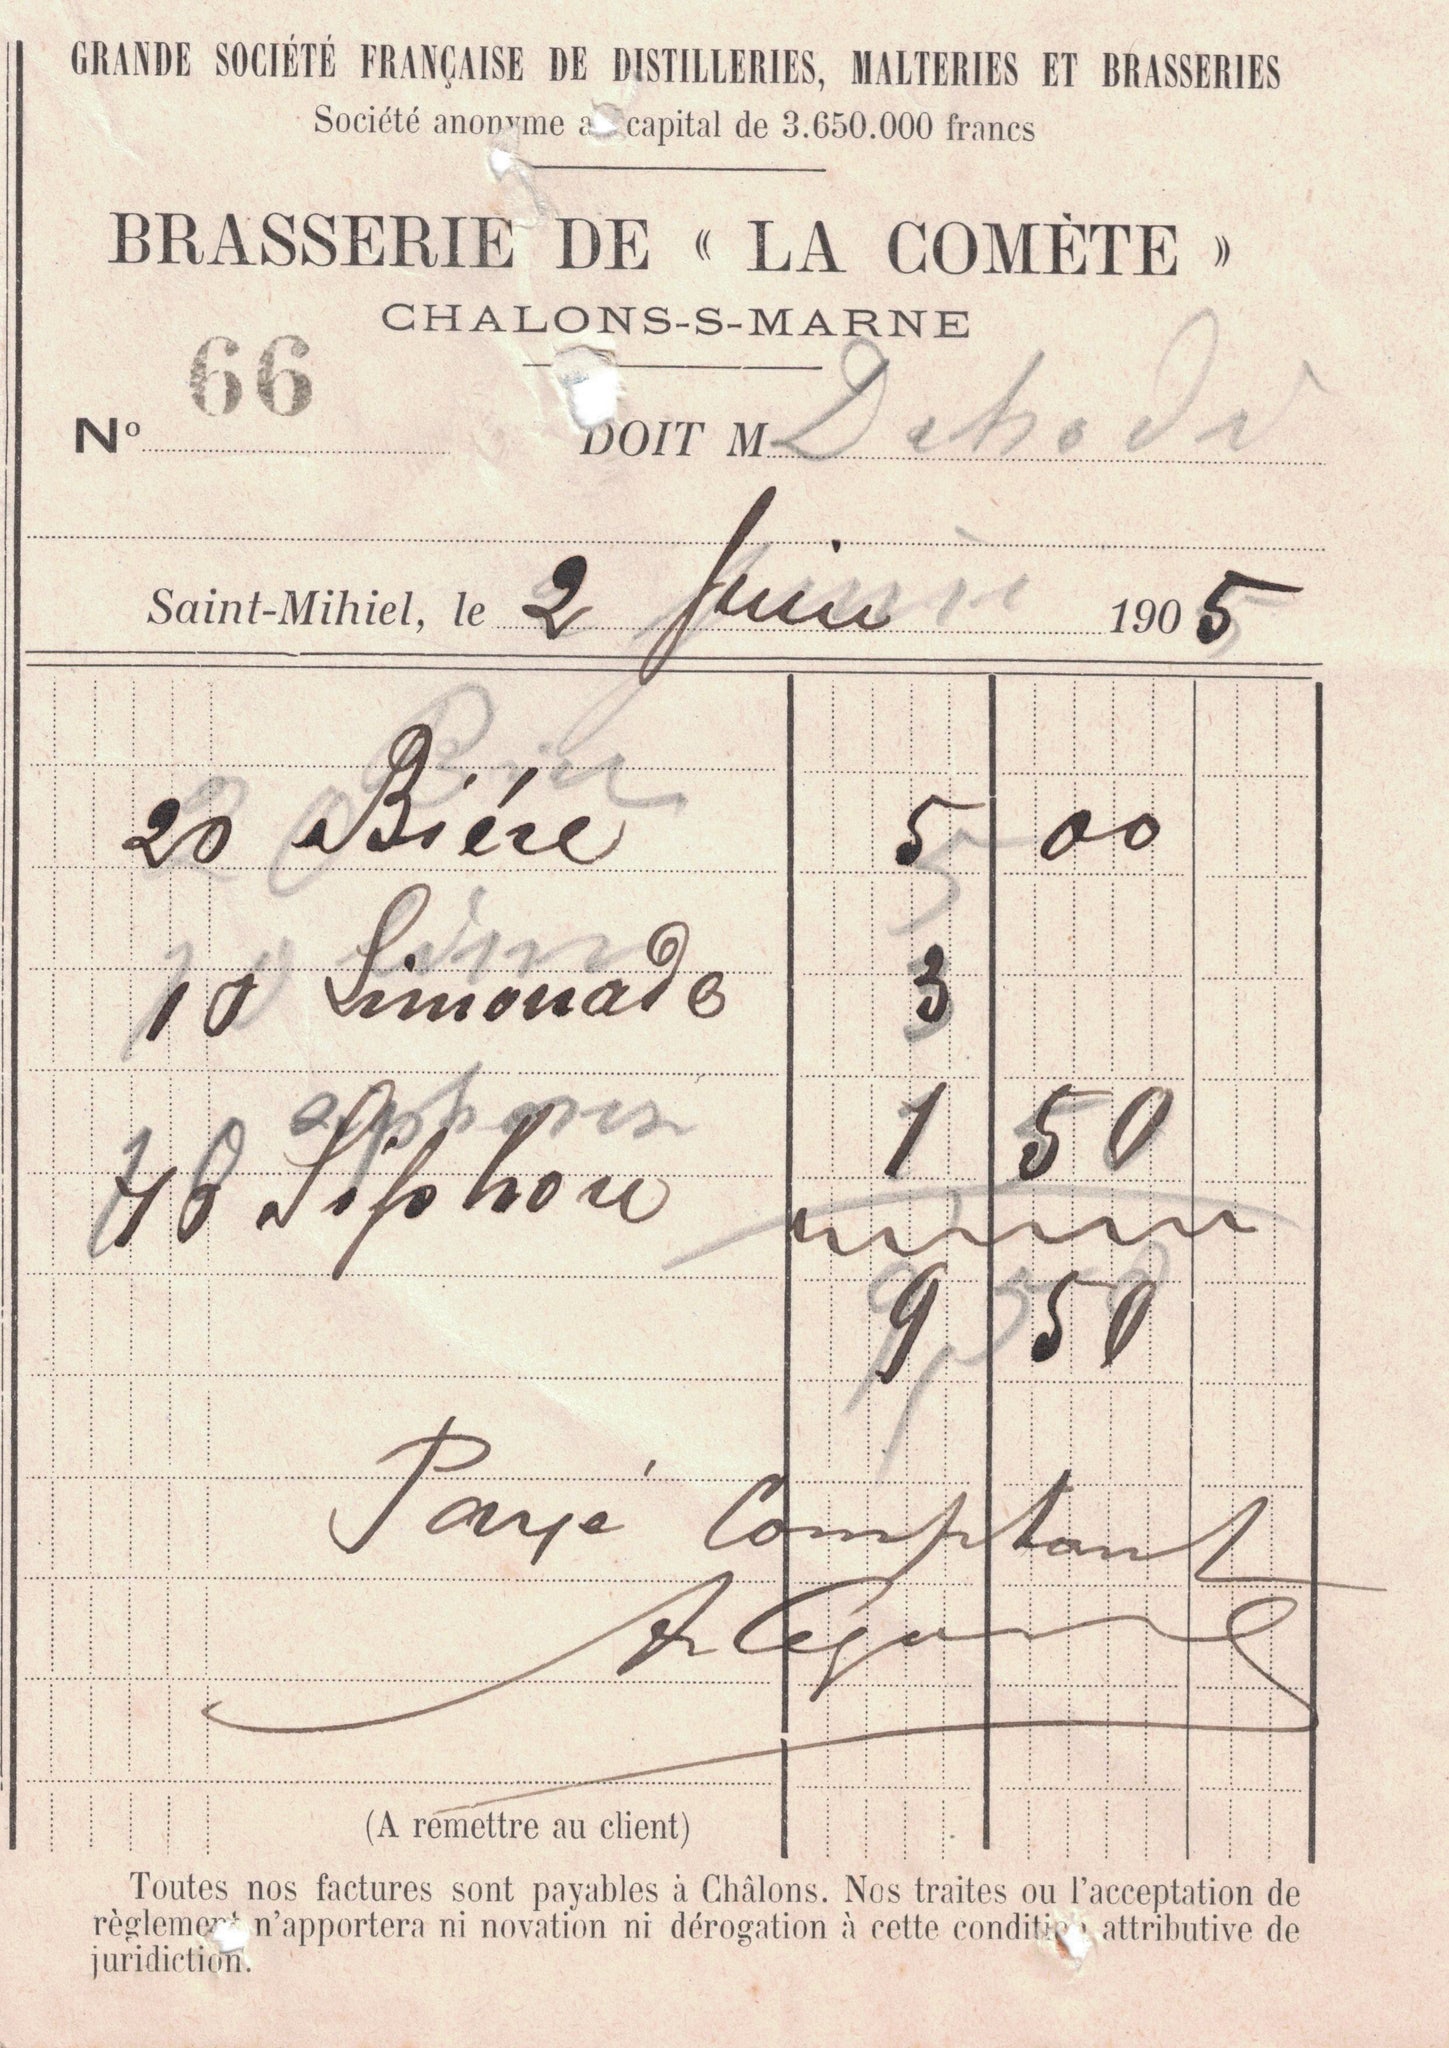 GRANDE SOCIÉTÉ FRANÇAISE DE DISTILLERIES, MALTERIES ET BRASSERIES
Société anonyme au capital de 3.650.000 francs
BRASSERIE DE « LA COMÈTE »
CHALONS-S-MARNE
66
No DOIT M
Saint-Mihiel, le 2 Juin 1905
20 Bière 5 00
10 Limonade 3
10 Siphon 1 50
9 50
Payé Comptant
(A remettre au client)
Toutes nos factures sont payables à Châlons. Nos traites ou l'acceptation de
règlement n'apportera ni novation ni dérogation à cette condition attributive de
juridiction.